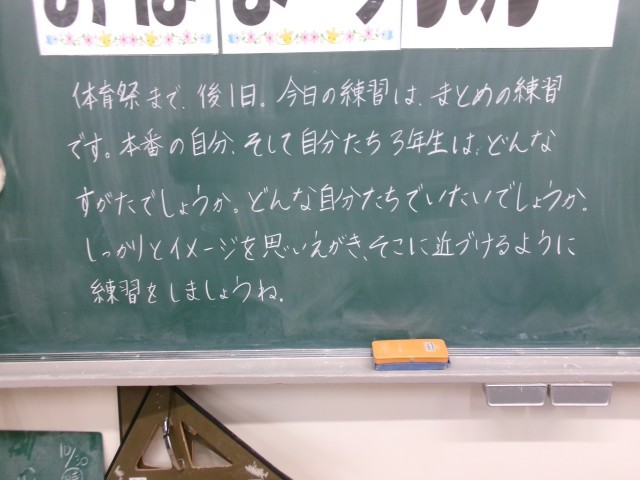 体育祭まで、後1日。今日の練習は、まとめの練習
です。本番の自分、そして自分たち3年生は、どんな
すがたでしょうか。どんな自分たちでいたいでしょうか。
しっかりとイメージを思いえがき、そこに近づけるように
練習をしましょうね。
10/30